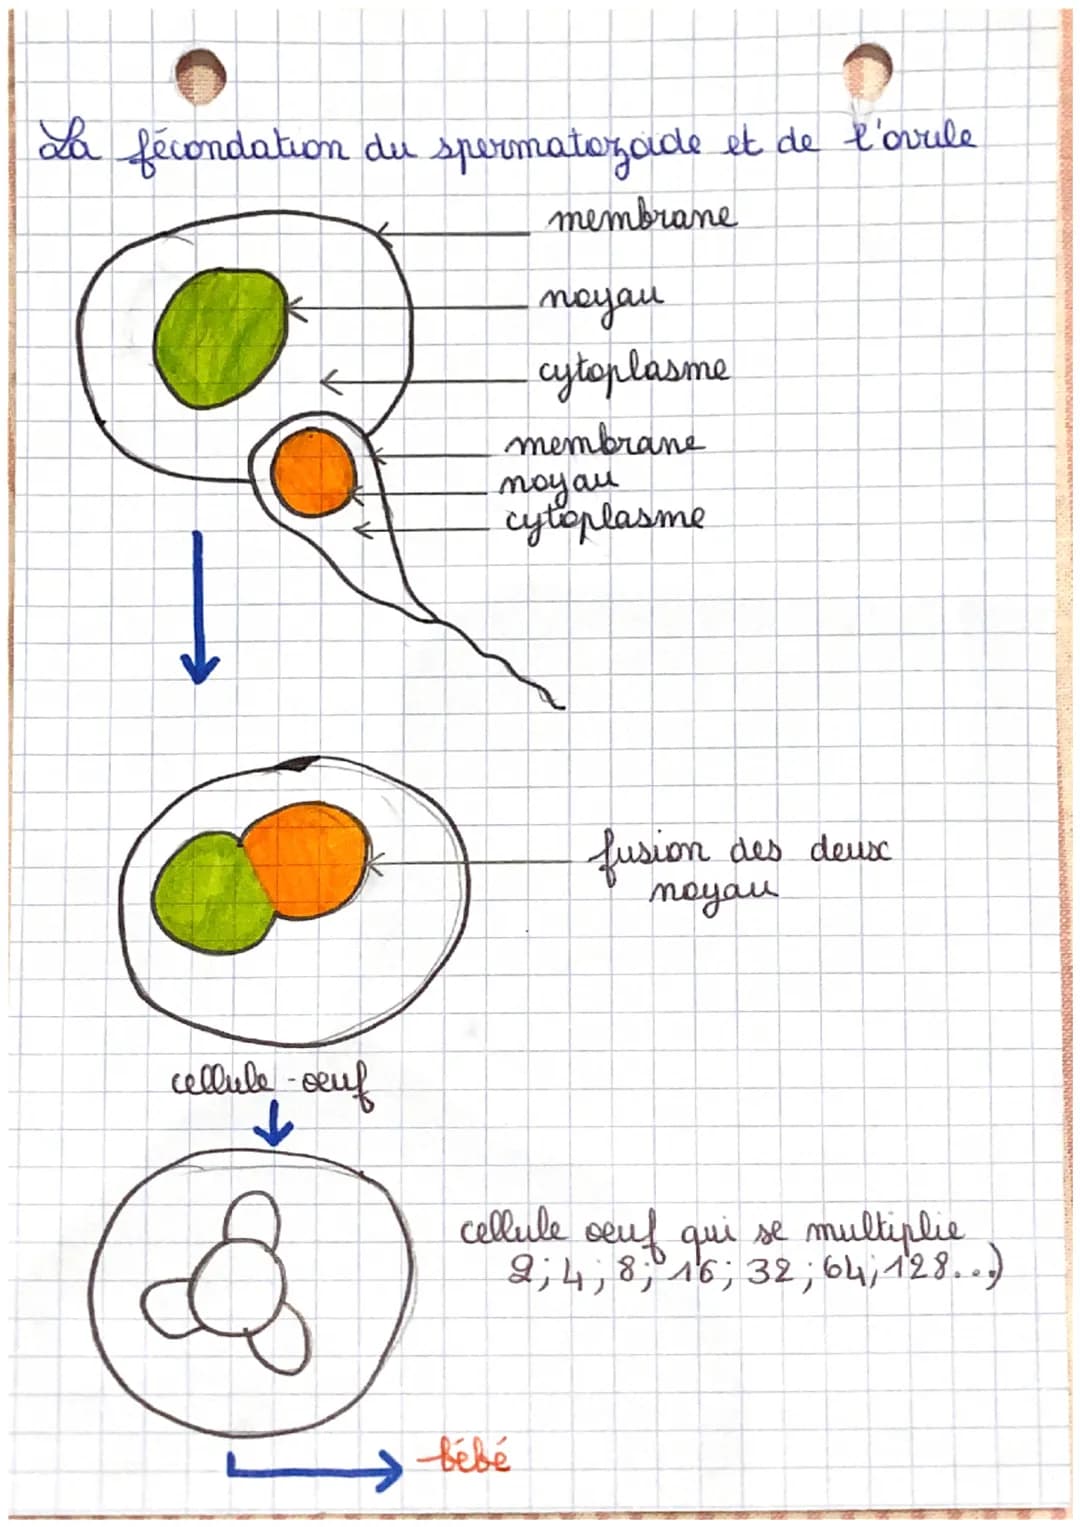 La fécondation du spermatozoïde et de l'ovule
membrane
noyau
cytoplasme
membrane
noyau
cytoplasme
fusion des deux
noyau
cellule-oeuf
cellule oeuf qui se multiplie
2; 4; 8; 16; 32; 64; 128...)
bébé